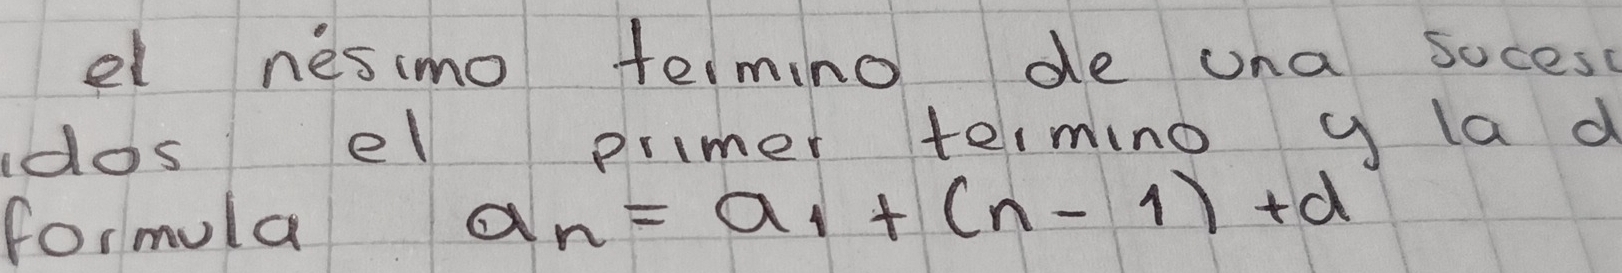 el nésimo termino de una suces
idos el primer termino y la d
formula aₙ = a₁ + (n - 1) + d